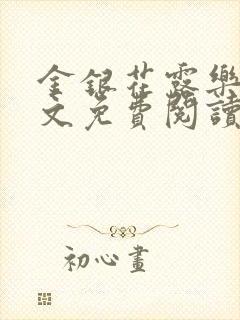 金銀花露樂
文免費閱讀
初心畫